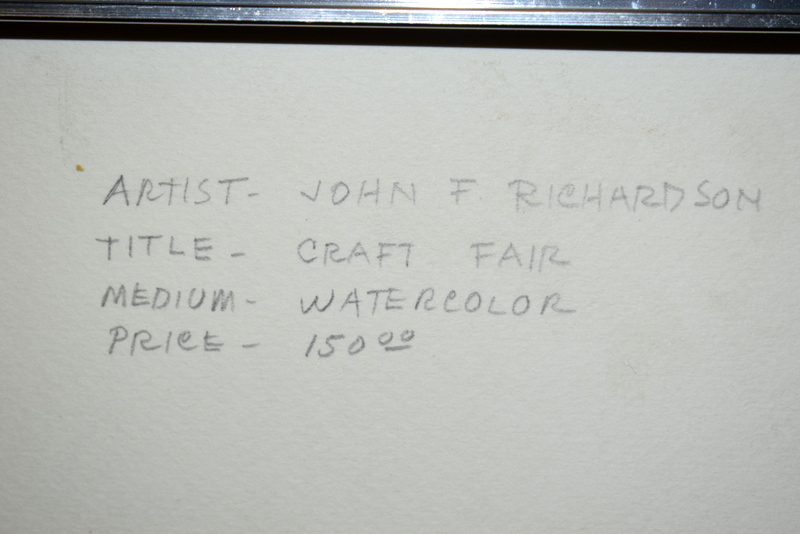 ARTIST- JOHN F. RICHARDSON
TITLE - CRAFT FAIR
MEDIUM- WATERCOLOR
PRICE - 150 00